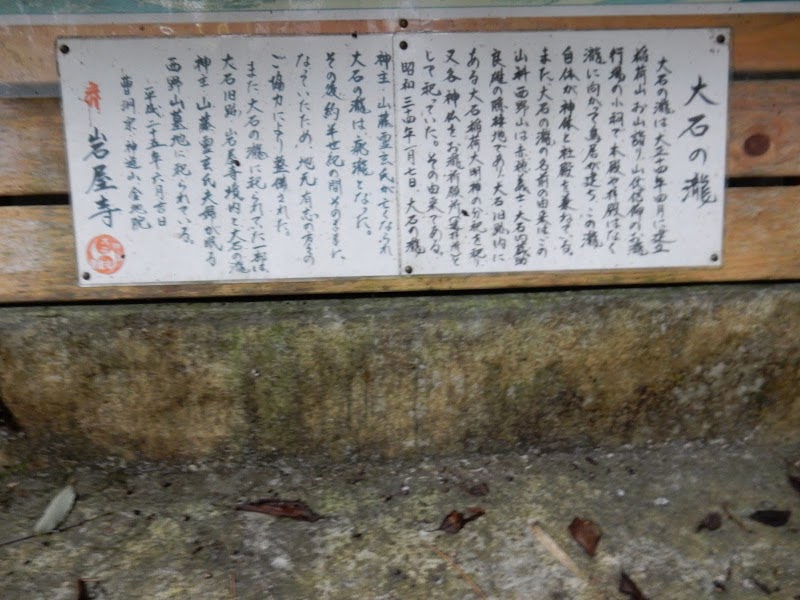 大石の瀧
大石の瀧は大正十四年四月に建立
稲荷山お山詣り山伏信仰のお瀧
行場の小祠で本殿や拝殿はなく
瀧に向かって鳥居が建ち、この瀧
自体が神体と社殿を兼ねている。
また、大石の瀧の名前の由来はこの
山科西野山は赤穂義士・大石内蔵助
良雄の隠棲地であり、大石旧跡内に
ある大石稲荷大明神の分祀を祀り
又各神仏をお瀧行場所に
して祀っていた。その由来である。
昭和三十四年一月七日、大石の瀧
神主・山藤霊玄氏が亡くなられ
大石の瀧は、廃瀧となった。
その後約半世紀の間そのままに
なっていたため、地元有志の方々の
ご協力により整備された。
また大石の瀧に祀られていた一部は
大石旧跡、岩屋寺境内と大石の瀧
神主、山藤霊玄氏夫婦が眠る
西野山墓地に祀られている。
平成二十五年六月吉日
曹洞宗・神遊山金地院
岩屋寺